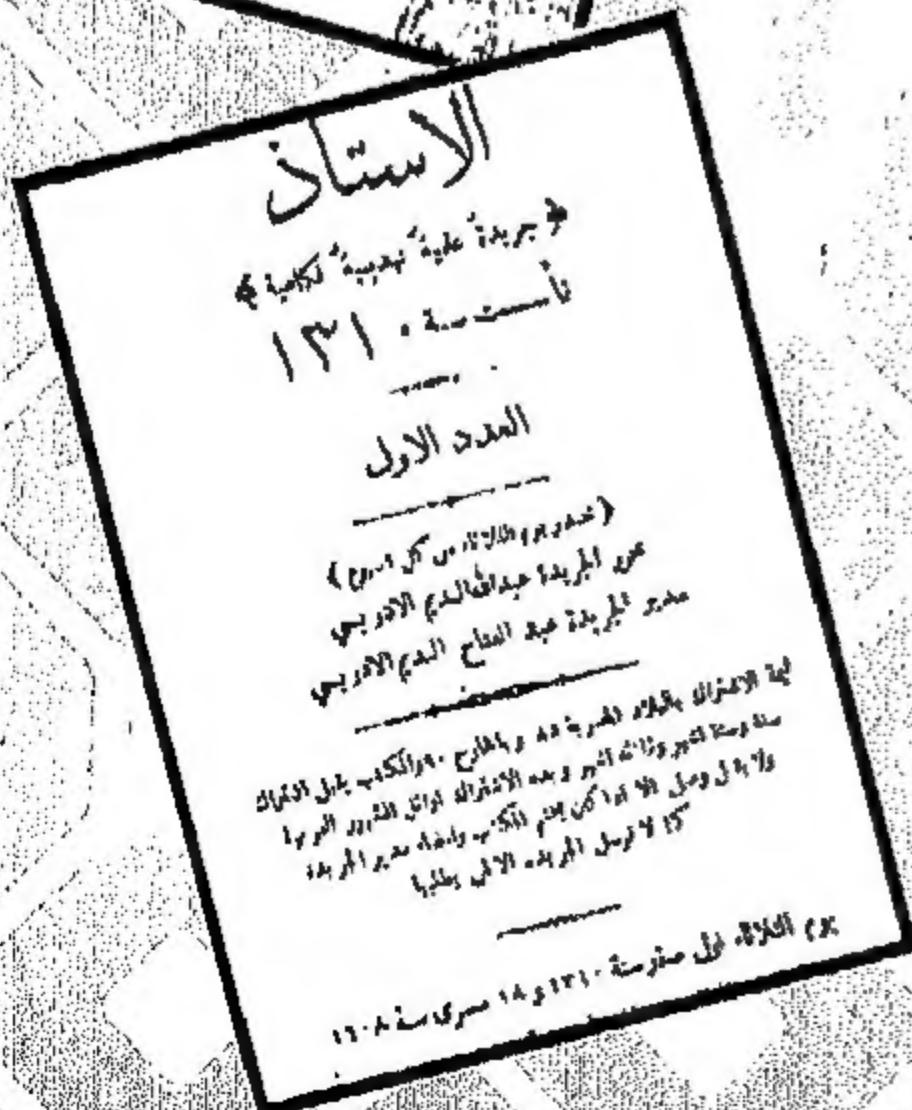 الاستاذ
﴿ جريدة علمية تهذيبية فكاهية ﴾
تأسست سنة ١٣١٠
العدد الاول
﴿ تصدر يوم الثلاثاء من كل اسبوع ﴾
محرر الجريدة عبدالله النديم الادريسي
مدير الجريدة عبد الفتاح النديم الادريسي
قيمة الاشتراك بالبلاد المصرية وبالخارج والمكتب يقبل اشتراك
سنة وستة اشهر وثلاثة اشهر وبدء الاشتراك اوائل الشهور العربية
ولا يقبل وصل الا اذا كان بختم المكتب وامضاء مدير الجريدة
كما لا ترسل الجريدة الا لمن يطلبها
يوم الثلاثاء اول صفر سنة ١٣١٠ و ١٨ مسرى سنة ١٦٠٨